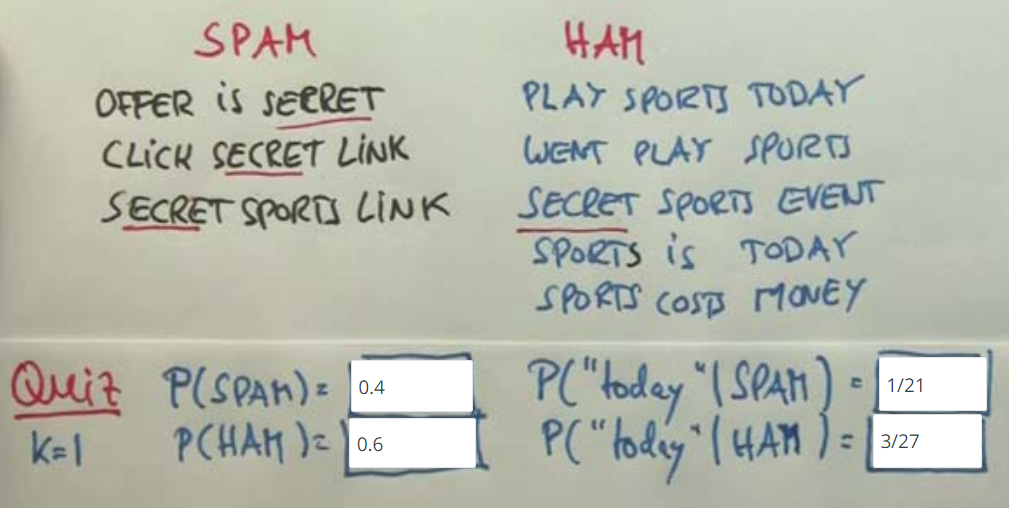 SPAM HAM
OFFER is SECRET
CLiCK SECRET LiNK
SECRET SPORTS LiNK
PLAY SPORTS TODAY
WENT PLAY SPORTS
SECRET SPORTS EVENT
SPORTS is TODAY
SPORTS COSTS MONEY
Quiz
K=1
P(SPAM)= 0.4
P(HAM)= 0.6
P("today"|SPAM) = 1/21
P("today"|HAM) = 3/27